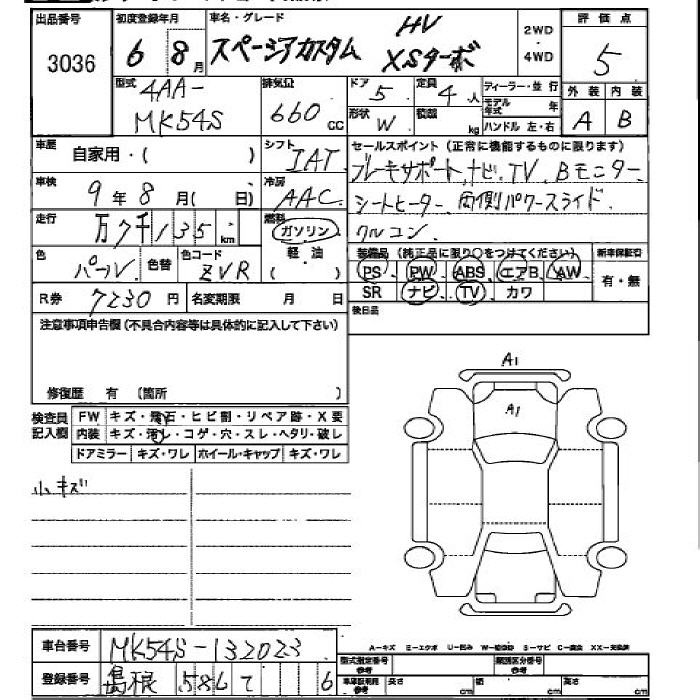 出品番号 初度登録年月 車名・グレード 2WD 評価点
3036 6 8月 スペーシアカスタム HV XSターボ ・4WD 5
型式 4AA- 排気量 ドア 5 定員 4人 ディーラー・並行 外装 内装
MK54S 660cc 形状 W 積載 kg モデル年式 年 ハンドル 左・右 A B
車歴 自家用・( ) シフト IAT セールスポイント (正常に機能するものに限ります)
ブレーキサポート、ナビ、TV、Bモニター、
車検 9年8月( 日) 冷房 AAC シートヒーター、両側パワースライド、
走行 万7千135km 燃料 ガソリン クルコン
軽・油 ( ) 装備品 (純正品に限り○をつけてください) 新車保証書
色 パール 色替 色コード ZVR PS、PW、ABS、エアB、AW、 有・無
R券 7230円 名変期限 月 日 SR ナビ、TV、カワ
注意事項申告欄(不具合内容等は具体的に記入して下さい) 後日品
修復歴 有 (箇所 )
検査員 FW キズ・飛石・ヒビ割・リペア跡・X要
記入欄 内装 キズ・汚レ・コゲ・穴・スレ・ヘタリ・破レ
ドアミラー キズ・ワレ ホイール・キャップ キズ・ワレ
小キズ
A1
A1
A−キズ E−エクボ U−凹み
車台番号 MK54S-132023 型式指定番号 類別区分番号
登録番号 島根 586 て 6 長さ cm 幅 cm 高さ cm